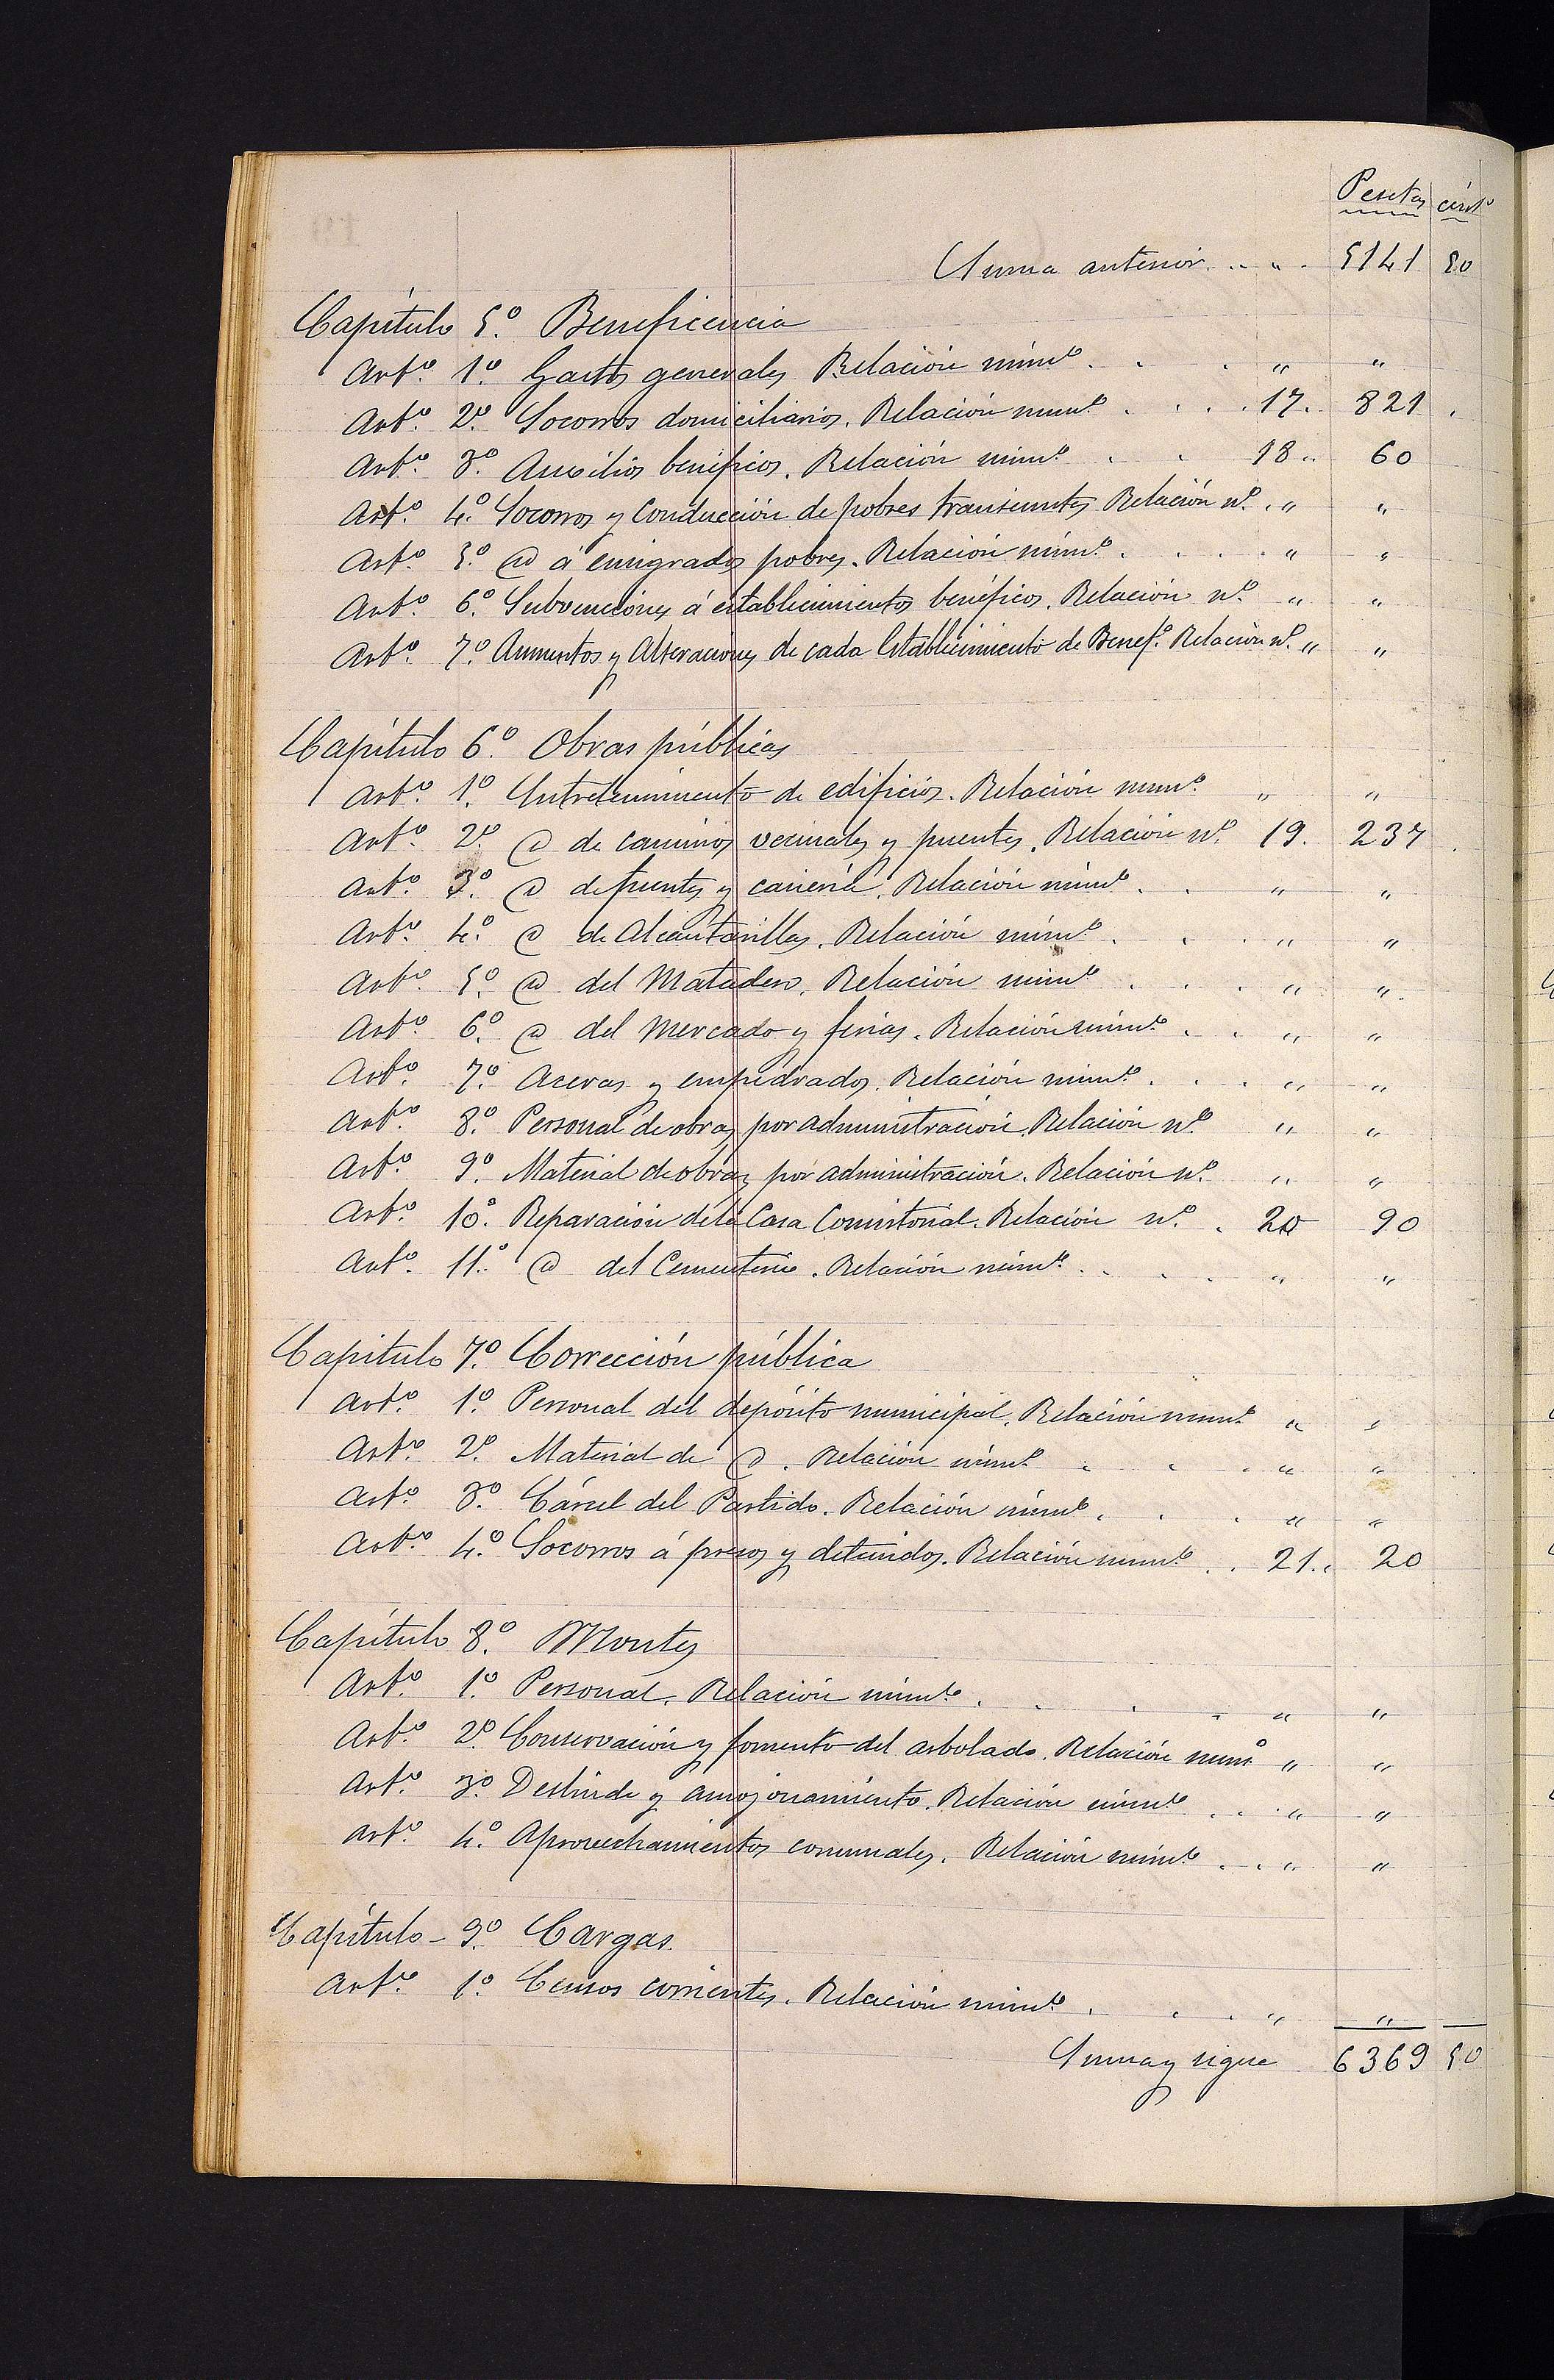 Pesetas cénts
Suma anterior . . . . 5141 50
Capítulo 5.º Beneficencia
Artº. 1º. Gastos generales Relación númº . . . " "
Artº. 2º. Socorros domiciliarios. Relación númº . . . . 17. 821 .
Artº. 3º. Auxilios benéficos. Relación númº . . 18.. 60
Artº. 4º. Socorros y Conducción de pobres transeuntes Relación nº. . " "
Artº. 5º. @ á emigrados pobres. Relación númº. . . . " "
Artº. 6º. Subvenciones á establecimientos benéficos. Relación nº. " "
Artº. 7º. Aumentos y Alteraciones de cada Establecimiento de Benefª. Relación nº. " "
Capítulo 6.º Obras públicas
Artº. 1º. Entretenimiento de edificios. Relación númº. " "
Artº. 2º. @ de caminos vecinales y puentes. Relación nº. 19. 237 .
Artº. 3º. @ de fuentes y cañería. Relación númº. . " "
Artº. 4º. @ de Alcantarillas. Relación númº. . . " "
Artº. 5º. @ del Matadero. Relación númº . . . " ".
Artº. 6º. @ del Mercado y ferias. Relación númº. . . " "
Artº. 7º. Aceras y empedrados. Relación númº. . . " "
Artº. 8º. Personal de obras por administración. Relación nº. " "
Artº. 9º. Material de obras por administración. Relación nº. " "
Artº. 10º. Reparación de la Casa Consistorial. Relación nº. . 20 90
Artº. 11º. @ del Cementerio. Relación númº. . . . " "
Capitulo 7.º Corrección pública
Artº. 1º. Personal del depósito municipal. Relación númº " "
Artº. 2º. Material de @. Relación númº . . . " "
Artº. 3º. Cárcel del Partido. Relación númº. . . " "
Artº. 4º. Socorros á presos y detenidos. Relación númº . . 21.. 20
Capítulo 8.º Montes
Artº. 1º. Personal. Relación númº. . . . " "
Artº. 2º. Conservación y fomento del arbolado. Relación númº " "
Artº. 3º. Deslinde y amojonamiento. Relación númº . . . " "
Artº. 4º. Aprovechamientos comunales. Relación númº . . . " "
Capítulo - 9º. Cargas.
Artº. 1º. Censos corrientes. Relación númº . . . " "
Suma y sigue 6369 50